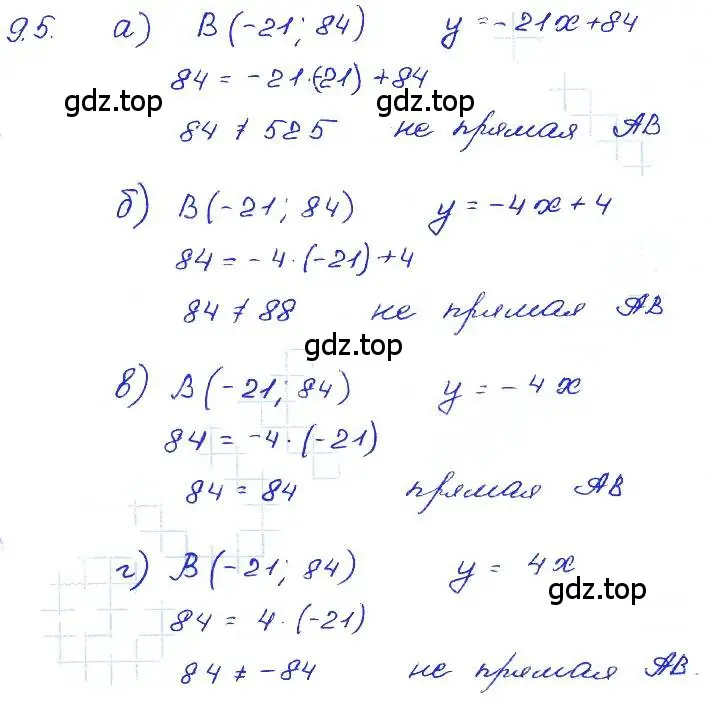 9.5. а) B(-21; 84) y = -21x+84
84 = -21·(-21) +84
gdz.top gdz.top
84 ≠ 525 не прямая AB
б) B(-21; 84) y = -4x+4
84 = -4·(-21)+4
84 ≠ 88 не прямая AB
gdz.top
в) B(-21; 84) y = -4x
84 = -4·(-21)
84 = 84 прямая AB
г) B(-21; 84) y = 4x
gdz.top
84 = 4·(-21)
84 ≠ -84 не прямая AB.